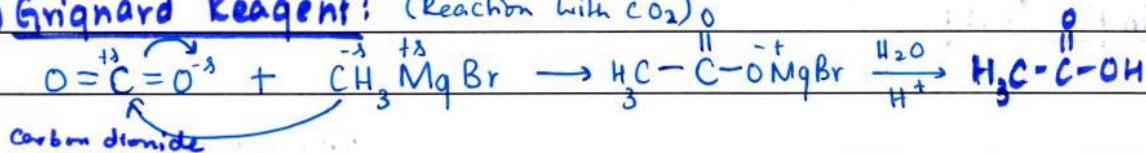 Grignard Reagent: (Reaction with CO2)
O=C=O + CH3MgBr → H3C-C-OMgBr H2O H+ H3C-C-OH
Carbon dioxide